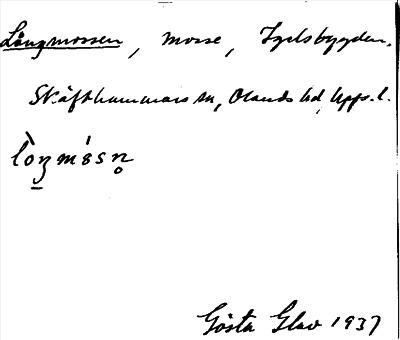 Långmossen, mosse, Igelsbygden.
Skäfthammars sn, Olands hd, Upps. l.
Gösta Glav 1937